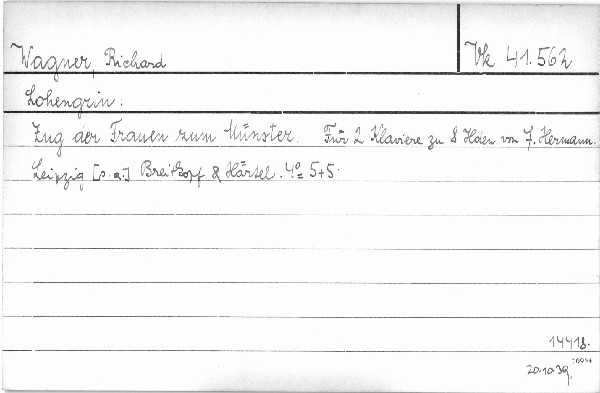 Wagner, Richard
Vk 41.562
Lohengrin.
Zug der Frauen zum Münster. Für 2 Klaviere zu 8 Hden von F. Hermann.
Leipzig [s. a.] Breitkopf & Härtel. 4° 5+5
14418.
20.10.39.